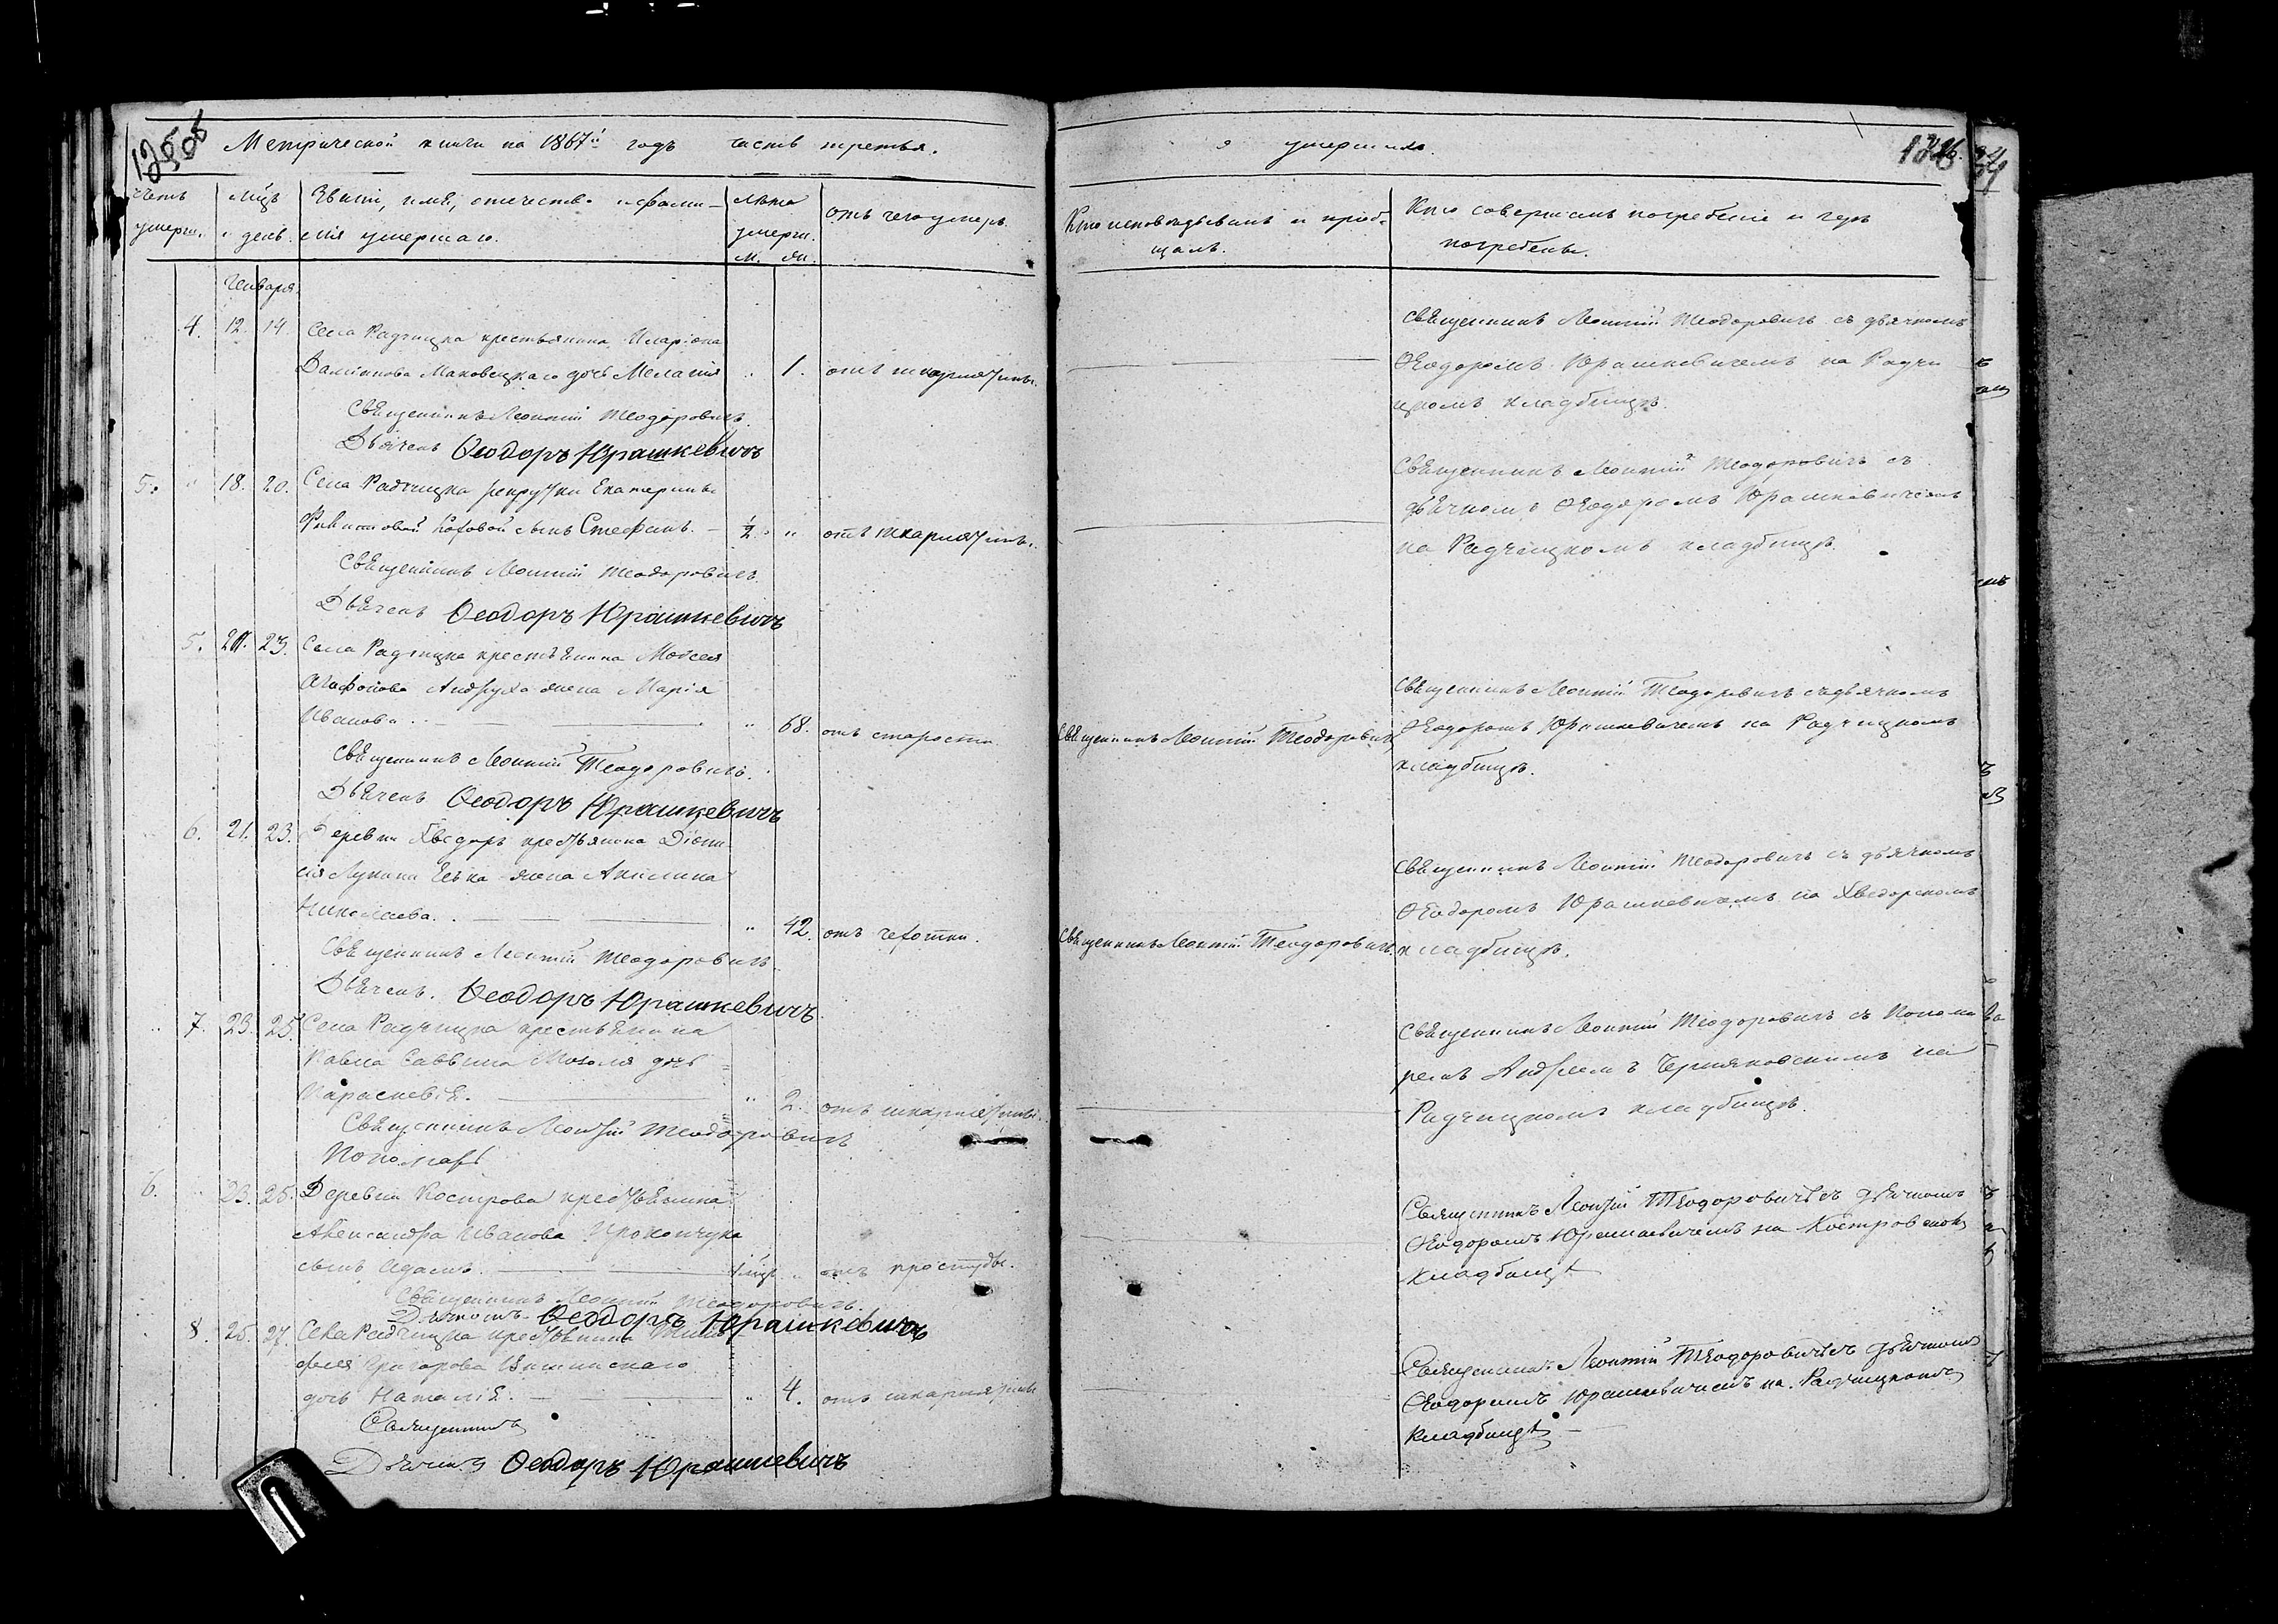 Метрической книги на 1867й годъ часть третья.
Счетъ умерш.
Мцъ и день.
Званіе, имя, отечество и фами-
лія умершаго.
Лѣта
умерш.
М. Ж.
отъ чего умеръ.
Генваря
4. 12. 14
Села Радчицка крестьянина Иларіона
Маковецкаго дочь Меланія „ 1. отъ шкарлятины.
Священникъ Леонтій Теодоровичъ.
Дьячекъ Ѳеодоръ Юрашкевичъ
5. „ 18. 20. Села Радчицка рекрутки Екатерины
сынъ Стефанъ. — 1/2. „ отъ шкарлятины.
Священникъ Леонтій Теодоровичъ.
Дьячекъ Ѳеодоръ Юрашкевичъ
5. 21. 23. Села Радчицка крестьянина Моисея
Агафонова Андруха жена Марія
Иванова. „ 68. отъ старости
Священникъ Леонтій Теодоровичъ.
Дьячекъ Ѳеодоръ Юрашкевичъ
6. 21. 23. Деревни Хведоръ крестьянина Діони-
сія Лукина жена Акилина
Николаева. „ 42. отъ чехотки.
Священникъ Леонтій Теодоровичъ
Дьячекъ. Ѳеодоръ Юрашкевичъ.
„ 7. 23. 25. Села Радчицка крестьянина
Павла Саввина дочь
Параскевія. „ 2. отъ шкарлятины.
Священникъ Леонтій Теодоровичъ
Пономарь
6. „ 23. 25. Деревни Кострова крестьянина
Александра Иванова Прокопчука
сынъ Адамъ. „ отъ простуды.
Священникъ Леонтій Теодоровичъ.
Дьячокъ Ѳеодоръ Юрашкевичъ
8. 25. 27. Села Радчицка крестьянина Тимо-
фея Григорова
дочь Наталія. „ 4. отъ шкарлятины
Священникъ
Дьячекъ Ѳеодоръ Юрашкевичъ
о умершихъ.
Кто исповѣдывалъ и пріоб-
щалъ.
Кто совершалъ погребеніе и гдѣ
погребены.
Священникъ Леонтій Теодоровичъ съ дьячкомъ
Ѳеодоромъ Юрашкевичемъ на Радчи-
цкомъ кладбищѣ.
Священникъ Леонтій Теодоровичъ съ
дьячкомъ Ѳеодоромъ Юрашкевичемъ
на Радчицкомъ кладбищѣ.
Священникъ Леонтій Теодоровичъ
Священникъ Леонтій Теодоровичъ съ дьячкомъ
Ѳеодоромъ Юрашкевичемъ на Радчицкомъ
кладбищѣ.
Священникъ Леонтій Теодоровичъ.
Священникъ Леонтій Теодоровичъ съ дьячкомъ
Ѳеодоромъ Юрашкевичемъ на Хведорскомъ
кладбищѣ.
Священникъ Леонтій Теодоровичъ съ Понома-
ремъ Андреемъ Черняковскимъ на
Радчицкомъ кладбищѣ.
Священникъ Леонтій Теодоровичъ съ дьячкомъ
Ѳеодоромъ Юрашкевичемъ на Костровском
кладбищѣ
Священникъ Леонтій Теодоровичъ съ дьячкомъ
Ѳеодоромъ Юрашкевичемъ на Радчицкомъ
кладбищѣ